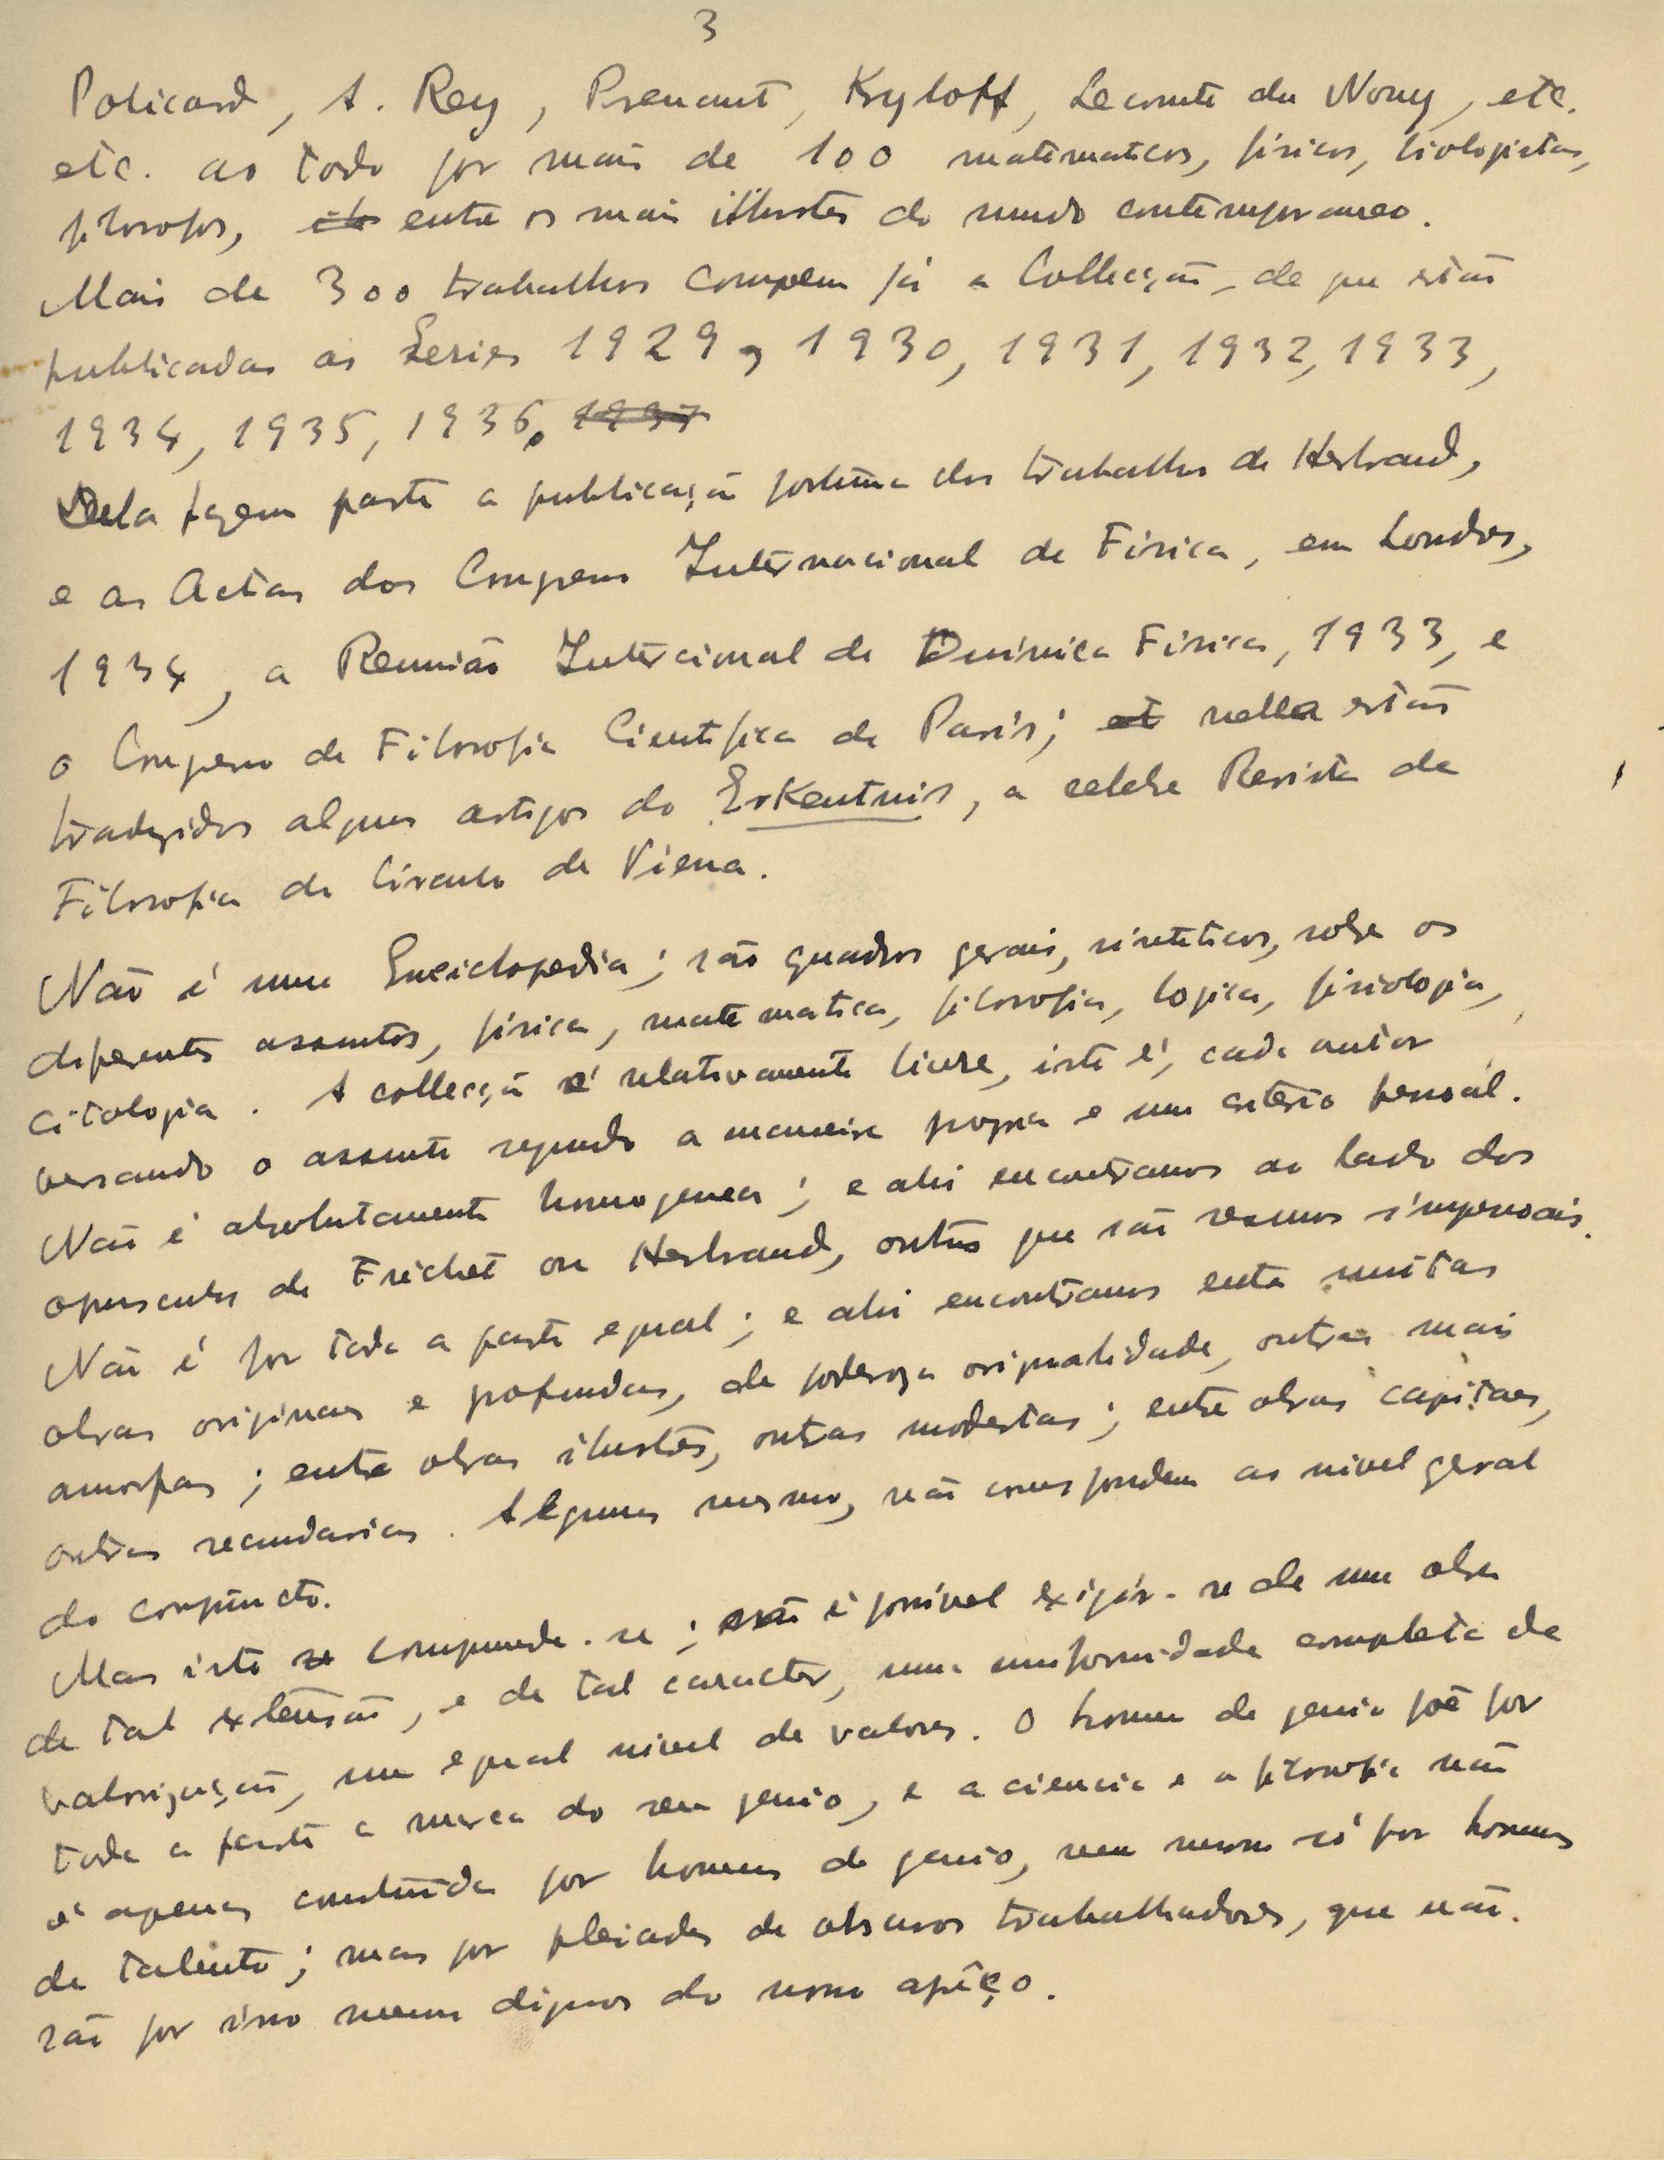 3
Policard, A. Rey, Prenant, Kryloff, Lecomte du Nouy, etc.
etc. ao todo por mais de 100 matematicos, fisicos, biologistas,
filosofos, entre os mais illustres do mundo contemporaneo.
Mais de 300 trabalhos compõem já a Collecção, de que estão
publicadas as Series 1929, 1930, 1931, 1932, 1933,
1934, 1935, 1936. 1937
Dela fazem parte a publicação postuma dos trabalhos de Herbrand,
e as Actas dos Congresso Internacional de Fisica, em Londres,
1934, a Reunião Intercional de Quimica Fisica, 1933, e
o Congresso de Filosofia Cientifica de Paris; nella estão
traduzidos alguns artigos do Erkentnis, a celebre Revista de
Filosofia do Circulo de Viena.
Não é uma Enciclopedia; são quadros gerais, sinteticos, sobre os
diferentes assuntos, fisica, matematica, filosofia, logica, fisiologia,
citologia. A collecção é relativamente livre, isto é, cada autor
versando o assunto segundo a maneira propria e um criterio pessoal.
Não é absolutamente homogenea; e ahi encontramos ao lado dos
opusculos de Fréchet ou Herbrand, outros que são resumos impessoais.
Não é por toda a parte egual; e ahi encontramos entre muitas
obras originaes e profundas, de poderoza originalidade, outras mais
amorfas; entre obras ilustres, outras modestas; entre obras capitaes,
outras secundarias. Algumas mesmo, não correspondem ao nivel geral
do conjuncto.
Mas isto compreende-se; não é possivel exigir-se de uma obra
de tal extensão, e de tal caracter, uma uniformidade completa de
valorização, um egual nivel de valores. O homem de genio põe por
toda a parte a marca do seu genio, e a ciencia e a filosofia não
é apenas construida por homens de genio, nem mesmo só por homens
de talento; mas por pleiades de obscuros trabalhadores, que não
são por isso menos dignos do nosso apreço.